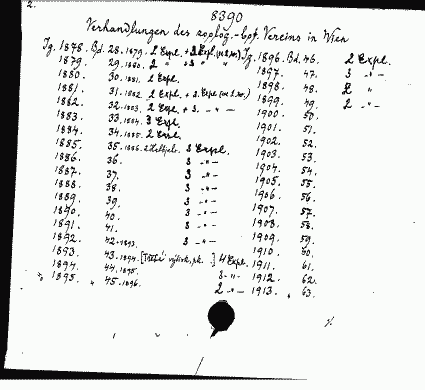 2.
8390
Verhandlungen des zoolog.-bot. Vereins in Wien
Jg. 1878. Bd. 28. 1879. 2 Expl. + 3 Expl. Jg. 1896. Bd. 46. 2 Expl.
1879. 29. 1880. 2 " + 3 " 1897. 47. 3 -"-
1880. 30. 1881. 2 Expl. 1898. 48. 2 "
1881. 31. 1882. 2 Expl. + 3. Expl. 1899. 49. 2 -"-
1882. 32. 1883. 2 Expl. + 3. -"- 1900. 50.
1883. 33. 1884. 3 Expl. 1901. 51.
1884. 34. 1885. 2 Expl. 1902. 52.
1885. 35. 1886. 3 Expl. 1903. 53.
1886. 36. 3 -"- 1904. 54.
1887. 37. 3 -"- 1905. 55.
1888. 38. 3 -"- 1906. 56.
1889. 39. 3 -"- 1907. 57.
1890. 40. 3 -"- 1908. 58.
1891. 41. 3 -"- 1909. 59.
1892. 42. 1893. 3 -"- 1910. 60.
1893. 43. 1894. 4 Expl. 1911. 61.
1894. 44. 1895. 3 -"- 1912. 62.
1895. " 45. 1896. 2 -"- 1913. 63.